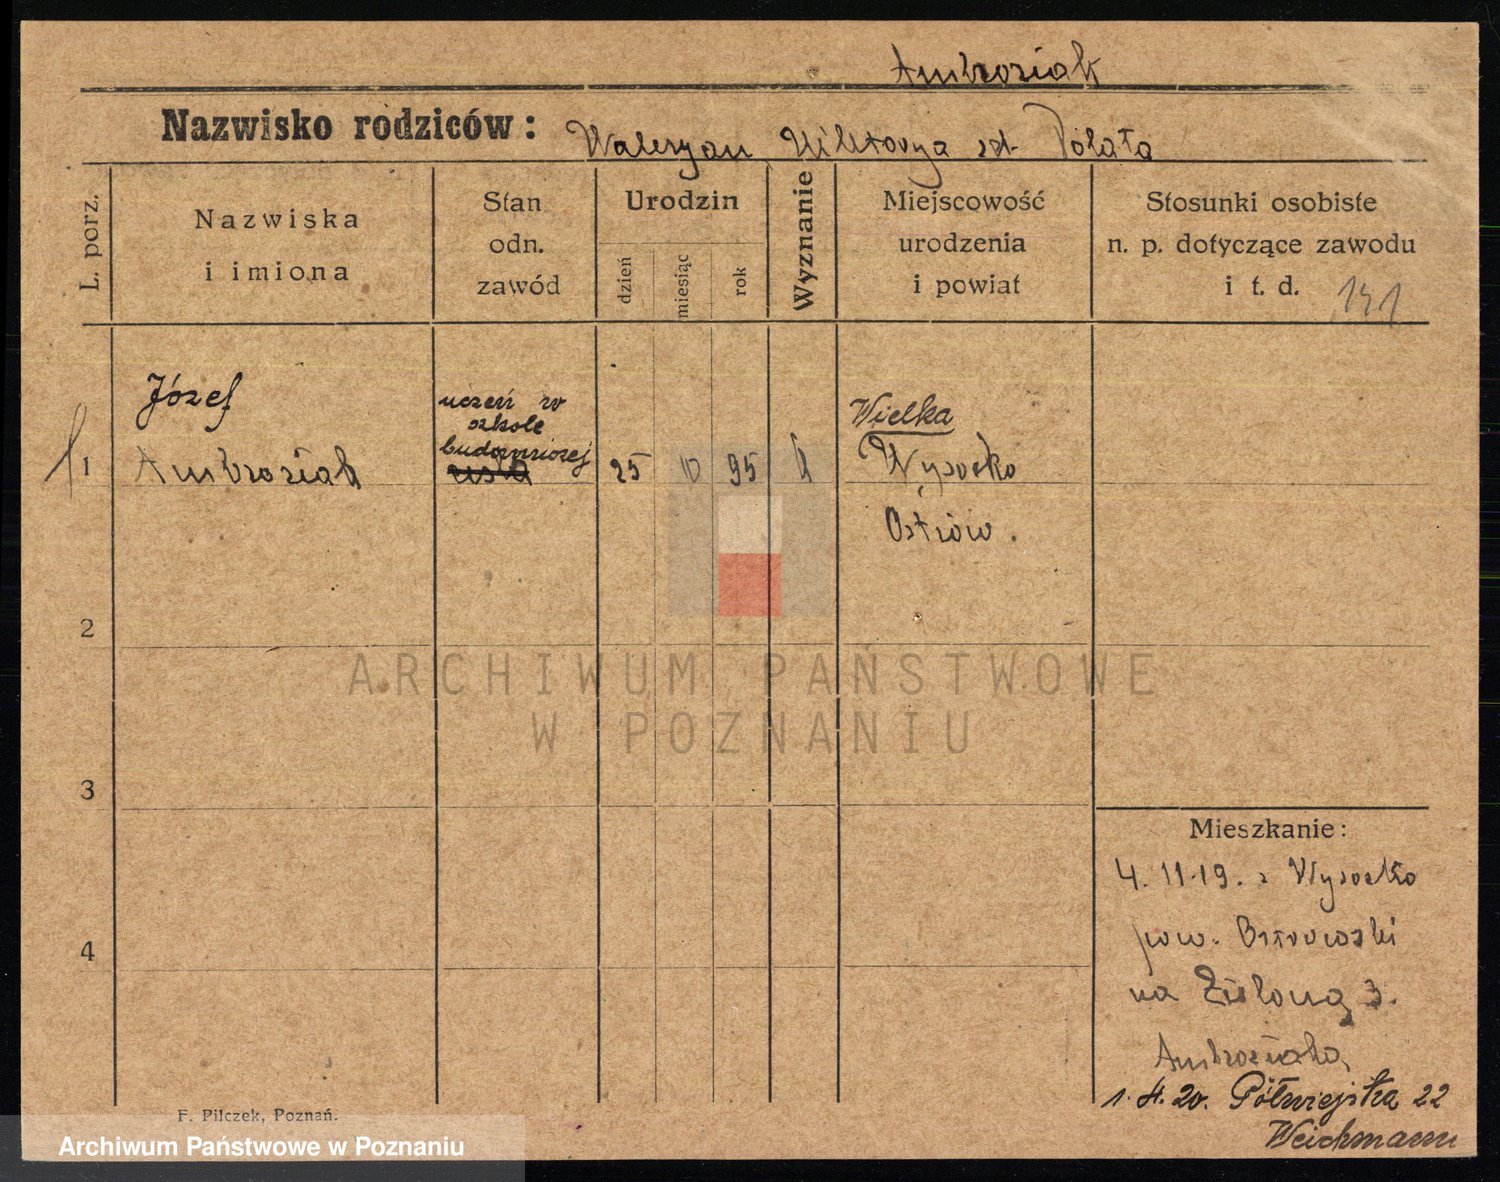 Ambroziak
Nazwisko rodziców: Waleryan Wiktorya zd. Polata
L. porz.
Nazwiska
i imiona
Stan
odn.
zawód
Urodzin
dzień
miesiąc
rok
Wyznanie
Miejscowość
urodzenia
i powiat
Stosunki osobiste
n. p. dotyczące zawodu
i t. d.
141
1
Józef
Ambroziak
uczeń w
szkole
budowniczej
25 10 95 k
Wielka
Wysocko
Ostrów.
2
3
4
Mieszkanie:
4. 11. 19. z Wysocko
pow. Ostrowski
na Zieloną 3.
Ambroziaka
1. 4. 20. Półwiejska 22
Weichmann
F. Pilczek, Poznań.
ARCHIWUM PAŃSTWOWE
W POZNANIU
Archiwum Państwowe w Poznaniu